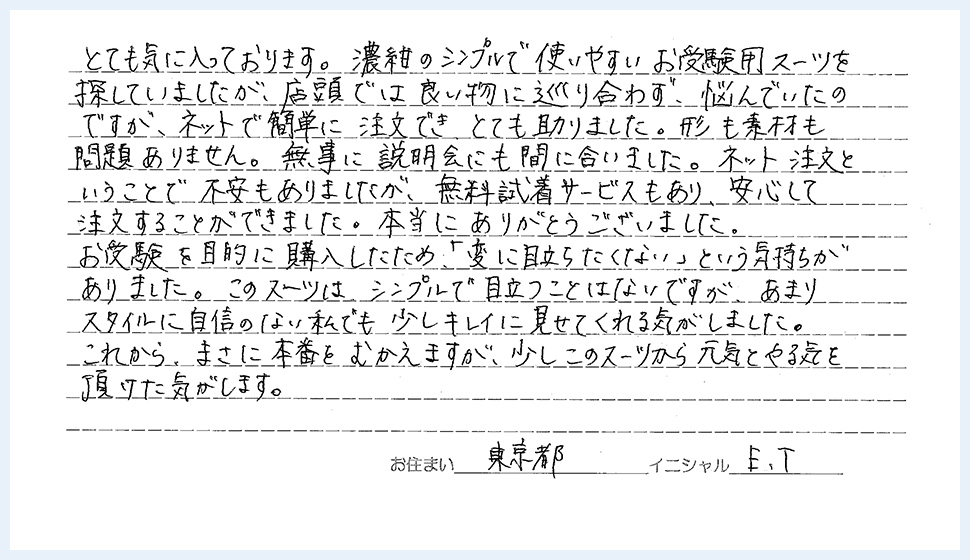 とても気に入っております。濃紺のシンプルで使いやすいお受験用スーツを
探していましたが、店頭では良い物に巡り合わず、悩んでいたの
ですが、ネットで簡単に注文でき、とても助りました。形も素材も
問題ありません。無事に説明会にも間に合いました。ネット注文と
いうことで不安もありましたが、無料試着サービスもあり、安心して
注文することができました。本当にありがとうございました。
お受験を目的に購入したため、「変に目立ちたくない」という気持ちが
ありました。このスーツは、シンプルで目立つことはないですが、あまり
スタイルに自信のない私でも少しキレイに見せてくれる気がしました。
これから、まさに本番をむかえますが、少しこのスーツから元気とやる気を
頂けた気がします。
お住まい 東京都 イニシャル E.T